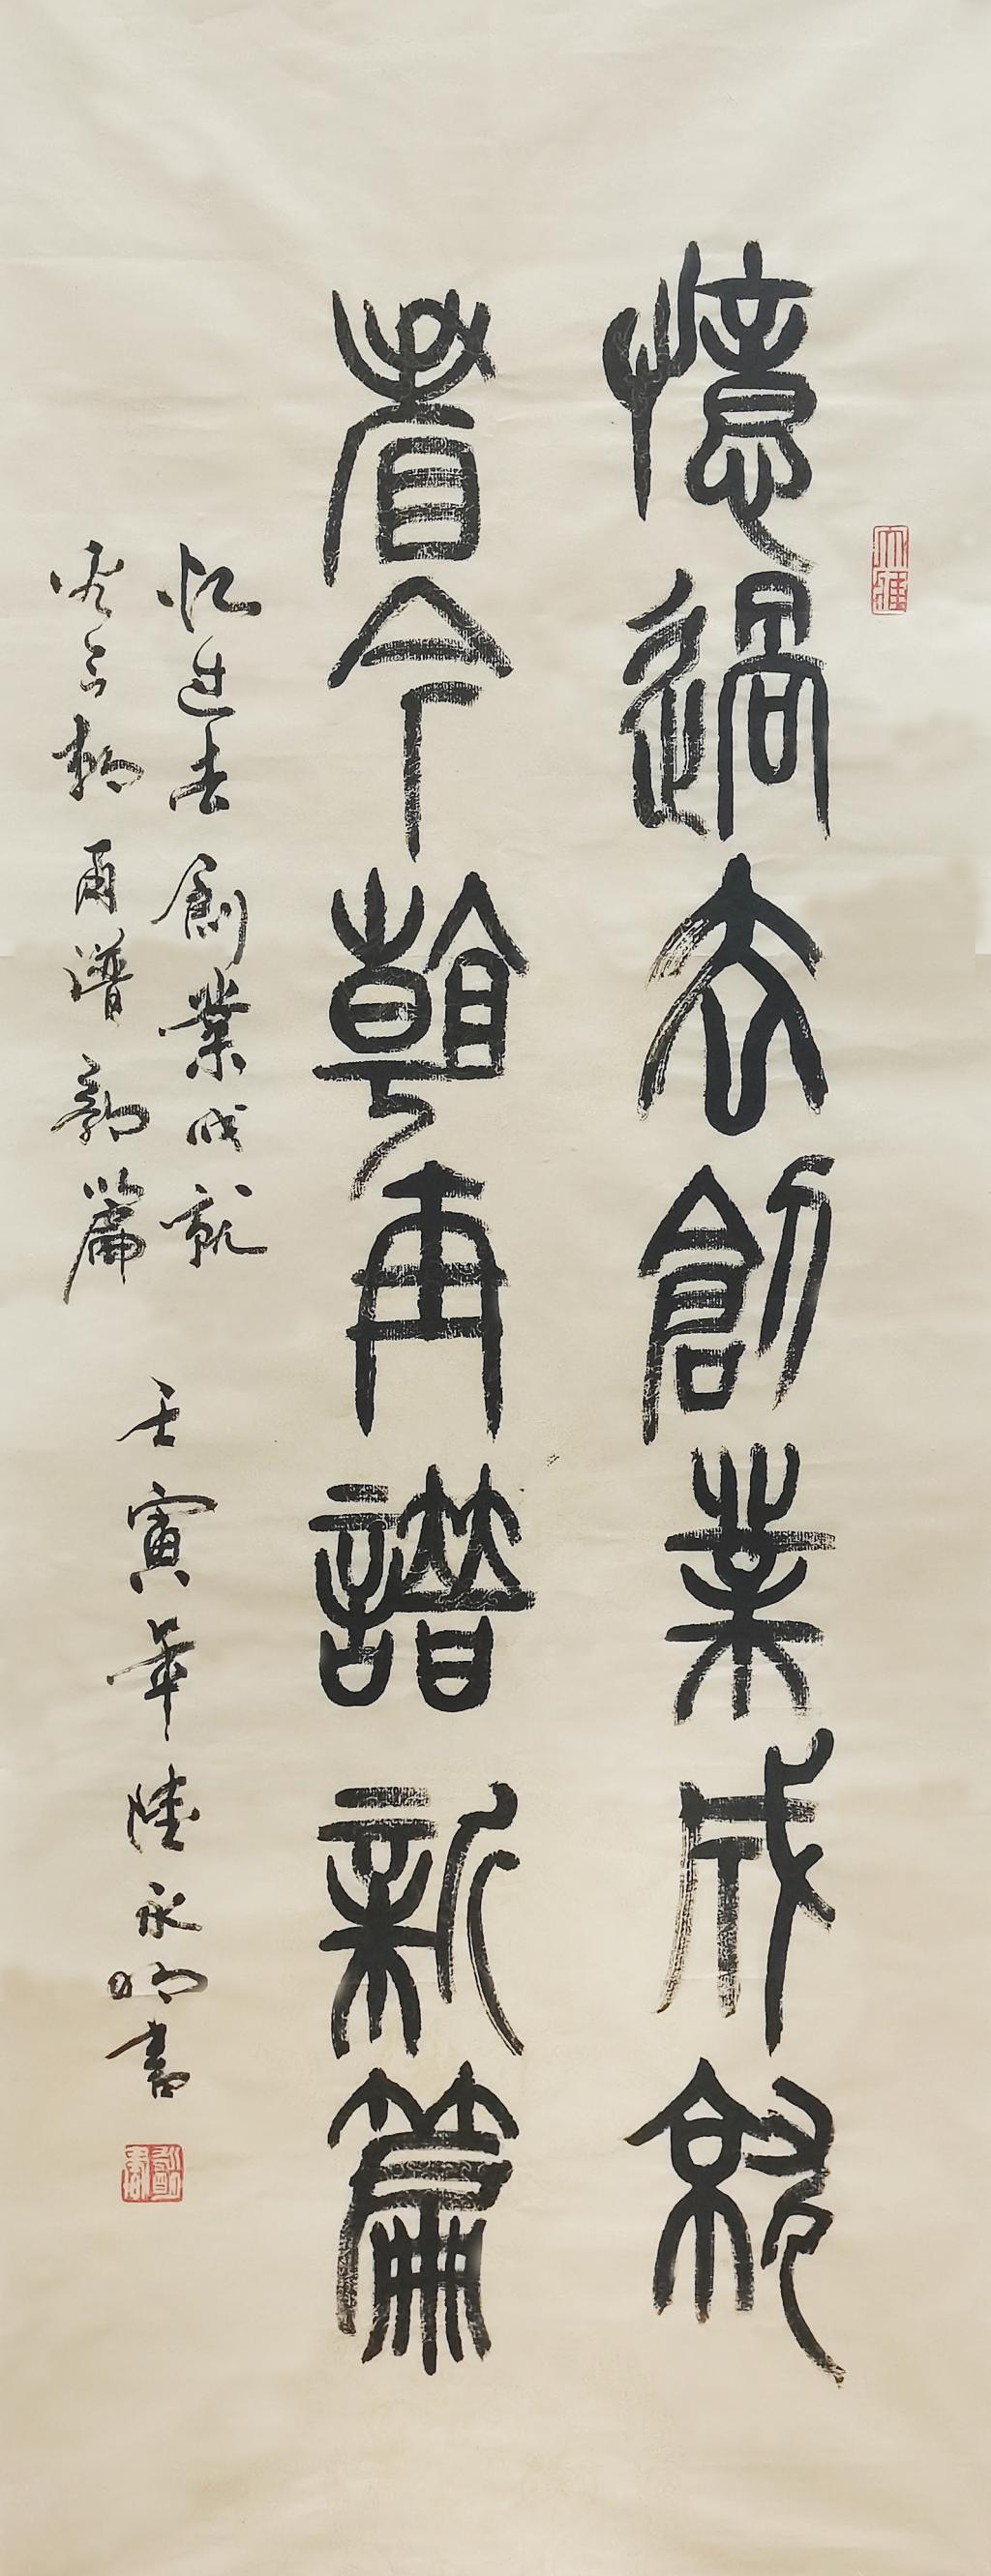 憶過去創業成就
看今朝再譜新篇
忆过去創業成就
看今朝再谱新篇
壬寅年陸永明書